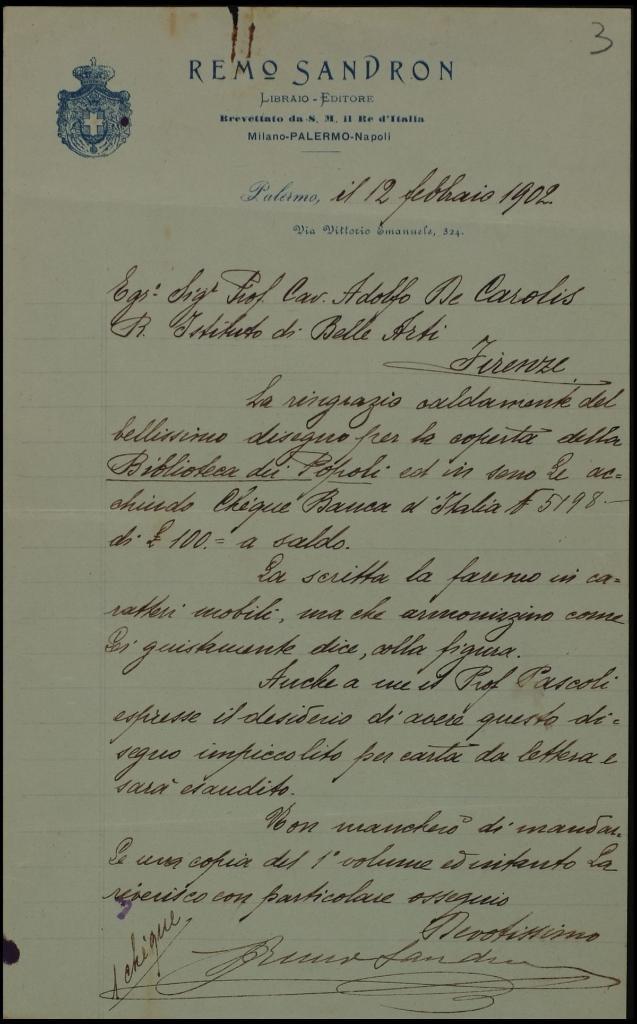 3
REMO SANDRON
LIBRAIO-EDITORE
Brevettato da S. M. il Re d'Italia
Milano-PALERMO-Napoli
Palermo, il 12 febbraio 1902
Via Vittorio Emanuele, 324.
Egr. Sigr Prof. Cav. Adolfo De Carolis
R. Istituto di Belle Arti
Firenze.
La ringrazio caldamente del
bellissimo disegno per la coperta della
Biblioteca dei Popoli ed in seno Le ac=
chiudo Chéque Banca d'Italia N 5198.—
di £ 100.= a saldo.
La scritta la faremo in ca=
ratteri mobili, ma che armonizzino come
Lei giustamente dice, colla figura.
Anche a me il Prof Pascoli
espresse il desiderio di avere questo di=
segno impiccolito per carta da lettera e
sarà esaudito.
Non mancherò di mandar=
Le una copia del 1° volume ed intanto La
riverisco con particolare ossequio
Devotissimo
Remo Sandron
1 chéque